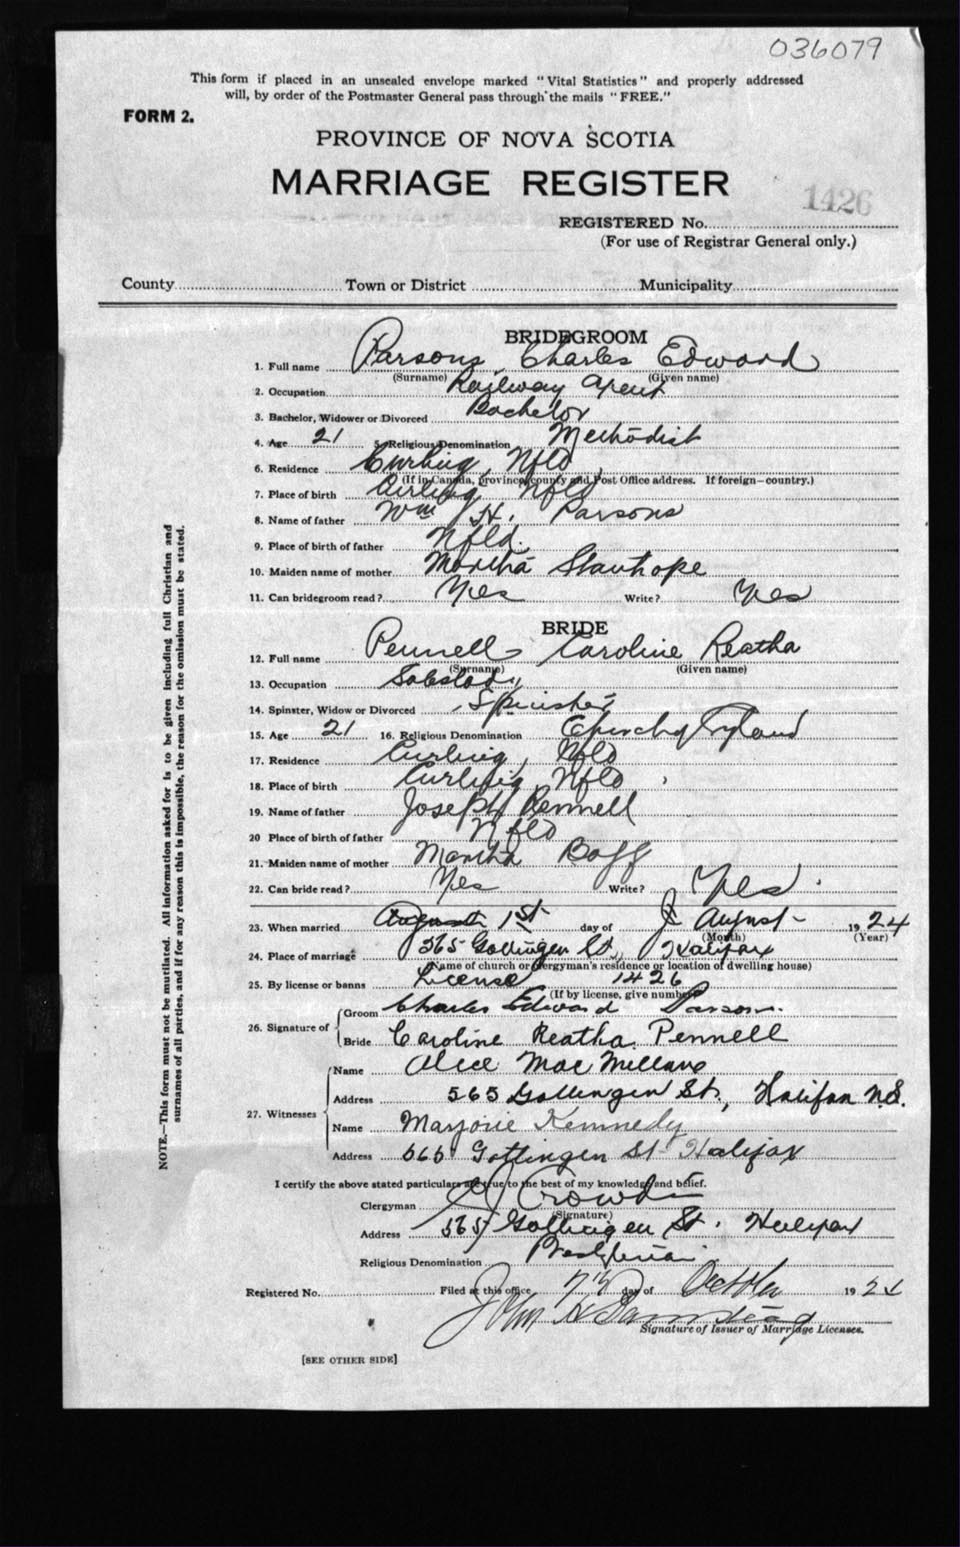 036079
This form if placed in an unsealed envelope marked "Vital Statistics" and properly addressed
will, by order of the Postmaster General pass through the mails "FREE."
FORM 2.
PROVINCE OF NOVA SCOTIA
MARRIAGE REGISTER
1426
REGISTERED No.
(For use of Registrar General only.)
County Town or District Municipality
BRIDEGROOM
1. Full name Parsons Charles Edward
(Surname) (Given name)
2. Occupation Railway Agent
3. Bachelor, Widower or Divorced Bachelor
4. Age 21 5. Religious Denomination Methodist
6. Residence Curling, Nfld
(If in Canada, province, county and Post Office address. If foreign—country.)
7. Place of birth Curling Nfld
8. Name of father Wm H. Parsons
9. Place of birth of father Nfld.
10. Maiden name of mother Martha Stanhope
11. Can bridegroom read? Yes Write? Yes
BRIDE
12. Full name Pennell Caroline Reatha
(Surname) (Given name)
13. Occupation Saleslady
14. Spinster, Widow or Divorced Spinster
15. Age 21 16. Religious Denomination Ch of England
17. Residence Curling, Nfld
18. Place of birth Curling Nfld
19. Name of father Joseph Pennell
20 Place of birth of father Nfld
21. Maiden name of mother Martha
22. Can bride read? Yes Write? Yes
23. When married August 1st day of August 1924
(Month) (Year)
24. Place of marriage 565 Gottingen St, Halifax
(Name of church or clergyman's residence or location of dwelling house)
25. By license or banns License 1426
(If by license, give number)
26. Signature of
Groom Charles Edward Parsons.
Bride Caroline Reatha Pennell
27. Witnesses
Name Alice MacMillan
Address 565 Gottingen St., Halifax N.S.
Name Marjorie Kennedy
Address 565 Gottingen St Halifax
I certify the above stated particulars are true to the best of my knowledge and belief.
Clergyman Crowdis
(Signature)
Address 565 Gottingen St. Halifax
Religious Denomination Presbyterian
Registered No. Filed at this office 7th day of October 1924
John H
Signature of Issuer of Marriage Licenses.
[SEE OTHER SIDE]
NOTE.—This form must not be mutilated. All information asked for is to be given including full Christian and
surnames of all parties, and if for any reason this is impossible, the reason for the omission must be stated.